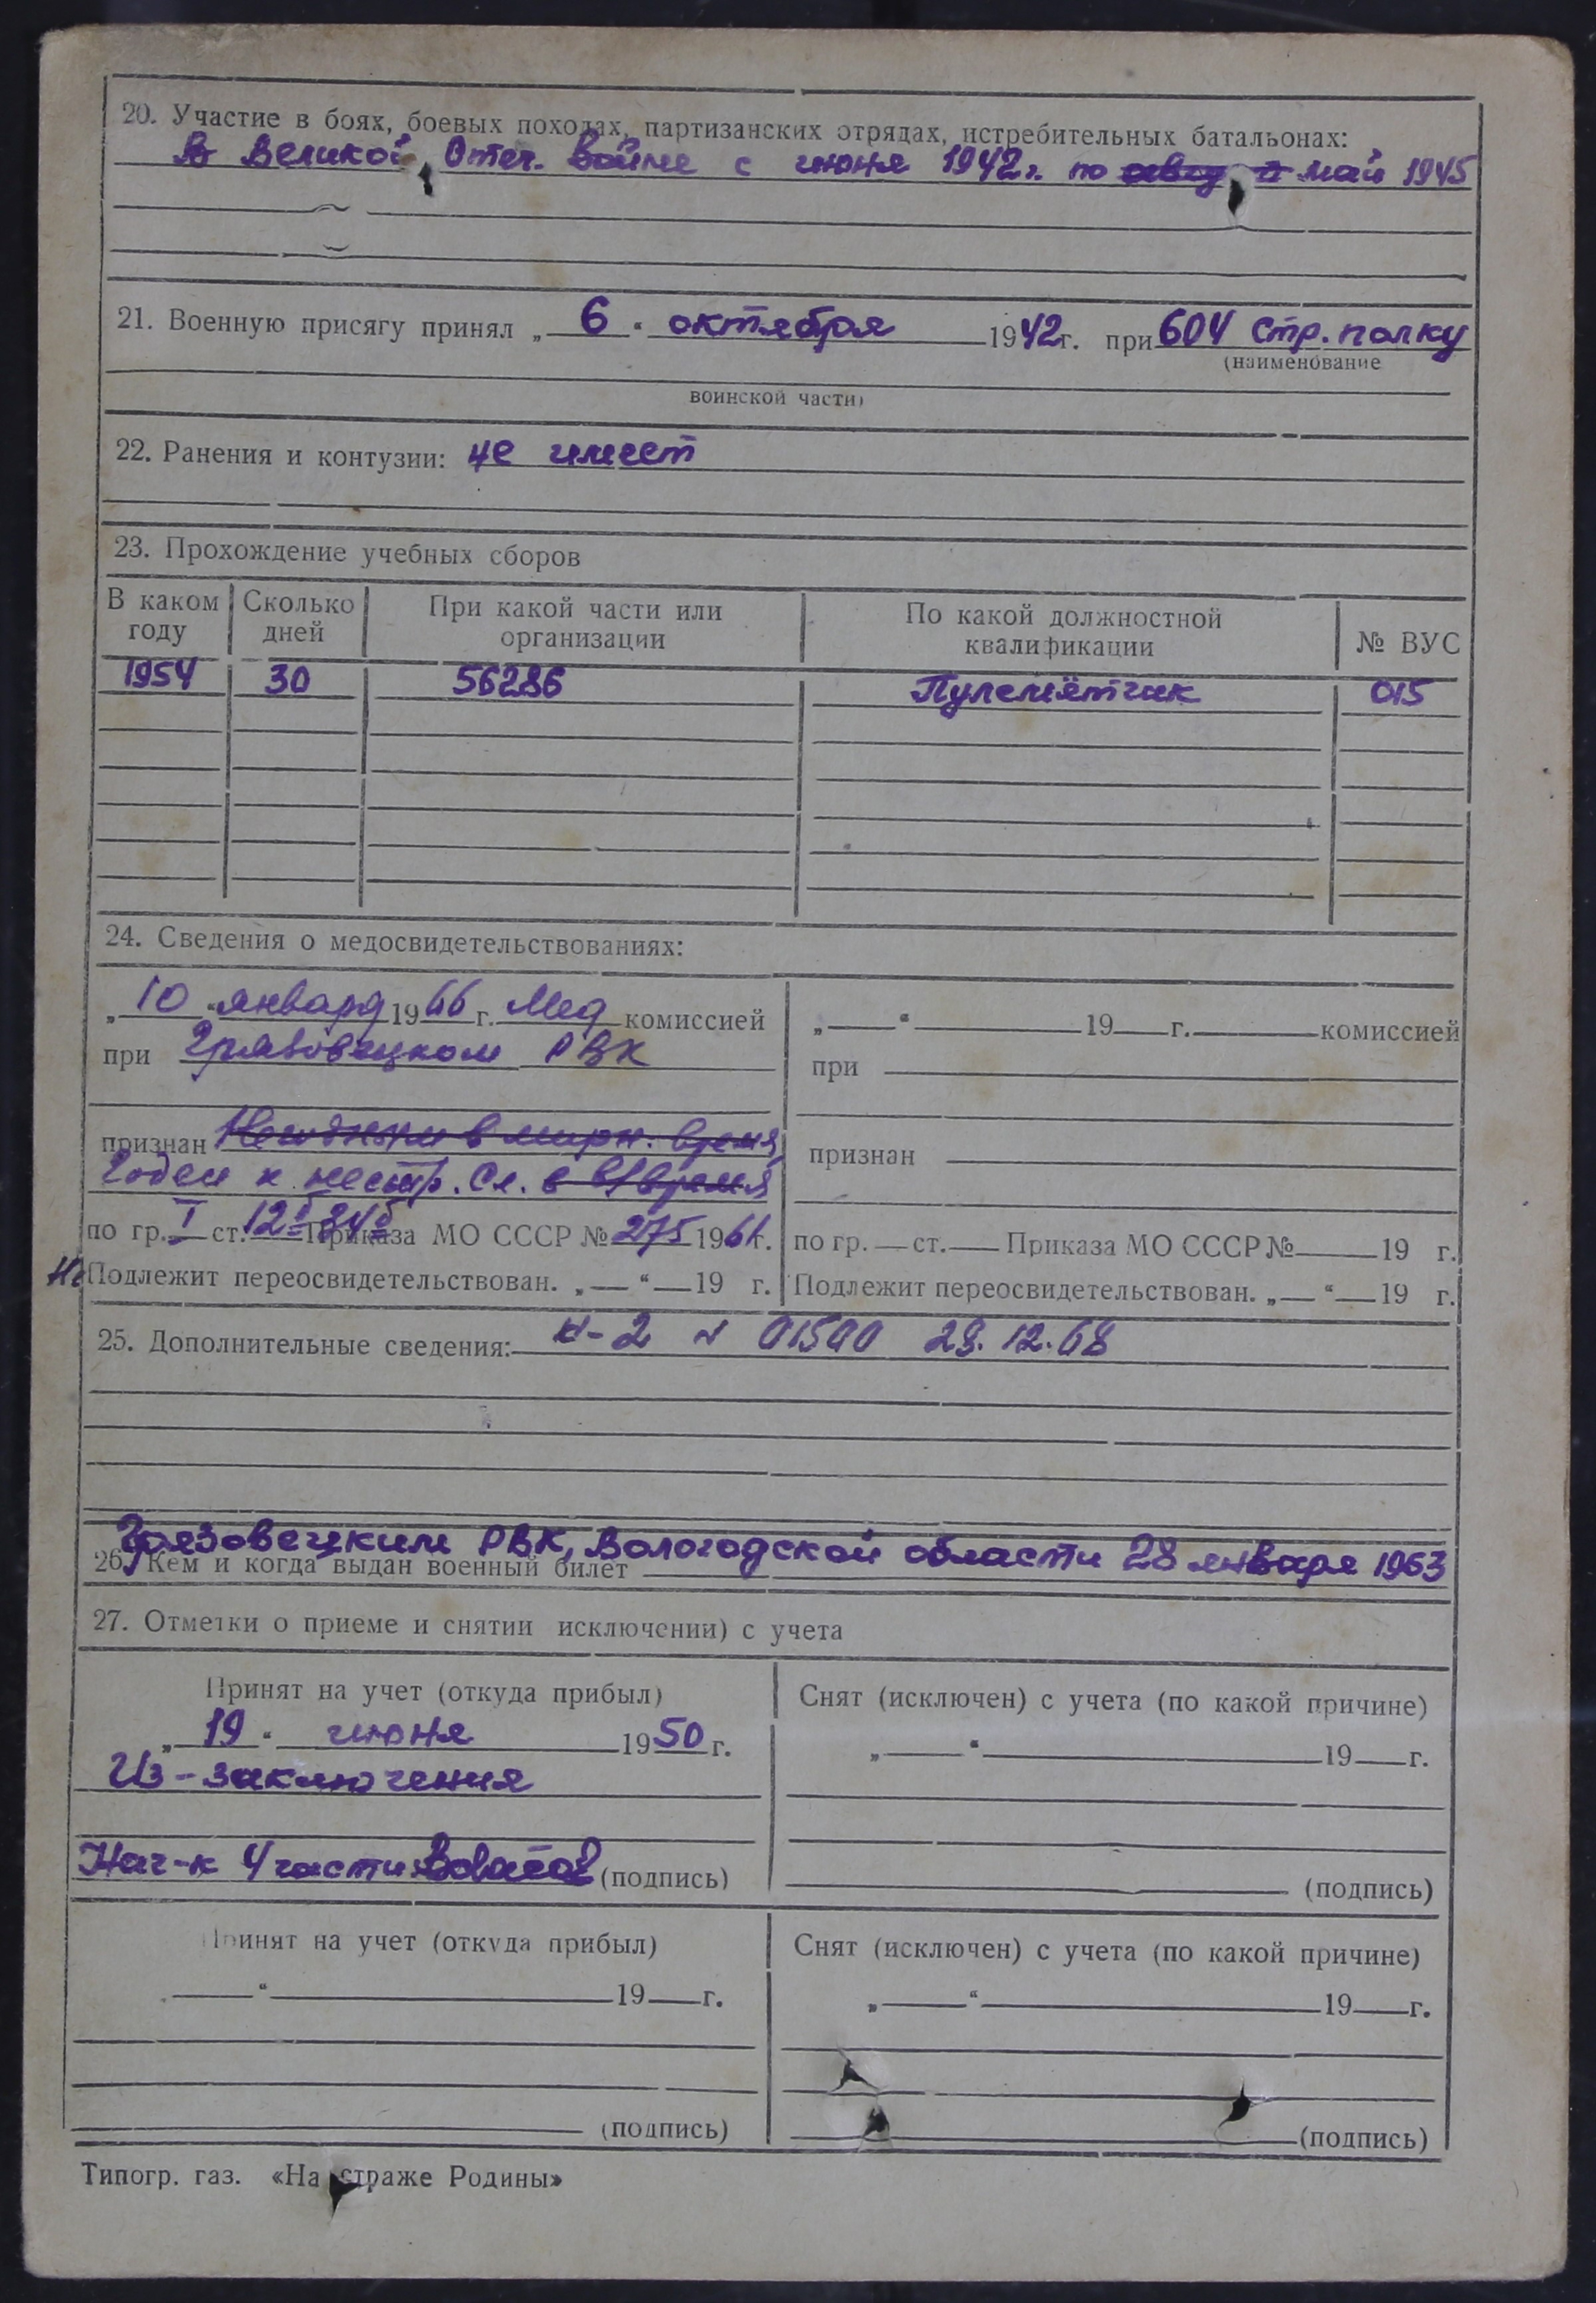 20. Участие в боях, боевых походах, партизанских отрядах, истребительных батальонах:
В Великой Отеч. войне с июня 1942 г. по май 1945
21. Военную присягу принял „ 6 “ октября 1942 г. при 604 стр. полку
(наименование
воинской части)
22. Ранения и контузии: не имеет
23. Прохождение учебных сборов
В каком году Сколько дней При какой части или организации По какой должностной квалификации № ВУС
1954 30 56286 Пулемётчик 015
24. Сведения о медосвидетельствованиях:
„ 10 “ января 1966 г. Мед комиссией
при Грязовецком РВК
признан Негоден в мирн. время,
Годен к нестр. сл. в в/время
по гр. I ст. 12б 34б Приказа МО СССР № 275 1961 г.
Не Подлежит переосвидетельствован. „ “ 19 г.
„ “ 19 г. комиссией
при
признан
по гр. ст. Приказа МО СССР № 19 г.
Подлежит переосвидетельствован. „ “ 19 г.
25. Дополнительные сведения: 28.12.68
Грязовецким РВК, Вологодской области 28 января 1963
26. Кем и когда выдан военный билет
27. Отметки о приеме и снятии исключении) с учета
Принят на учет (откуда прибыл)
„ 19 “ июня 1950 г.
Из-заключения
Нач-к 4 части (подпись)
Снят (исключен) с учета (по какой причине)
„ “ 19 г.
(подпись)
Принят на учет (откуда прибыл)
“ 19 г.
(подпись)
Снят (исключен) с учета (по какой причине)
„ “ 19 г.
(подпись)
Типогр. газ. «На страже Родины»